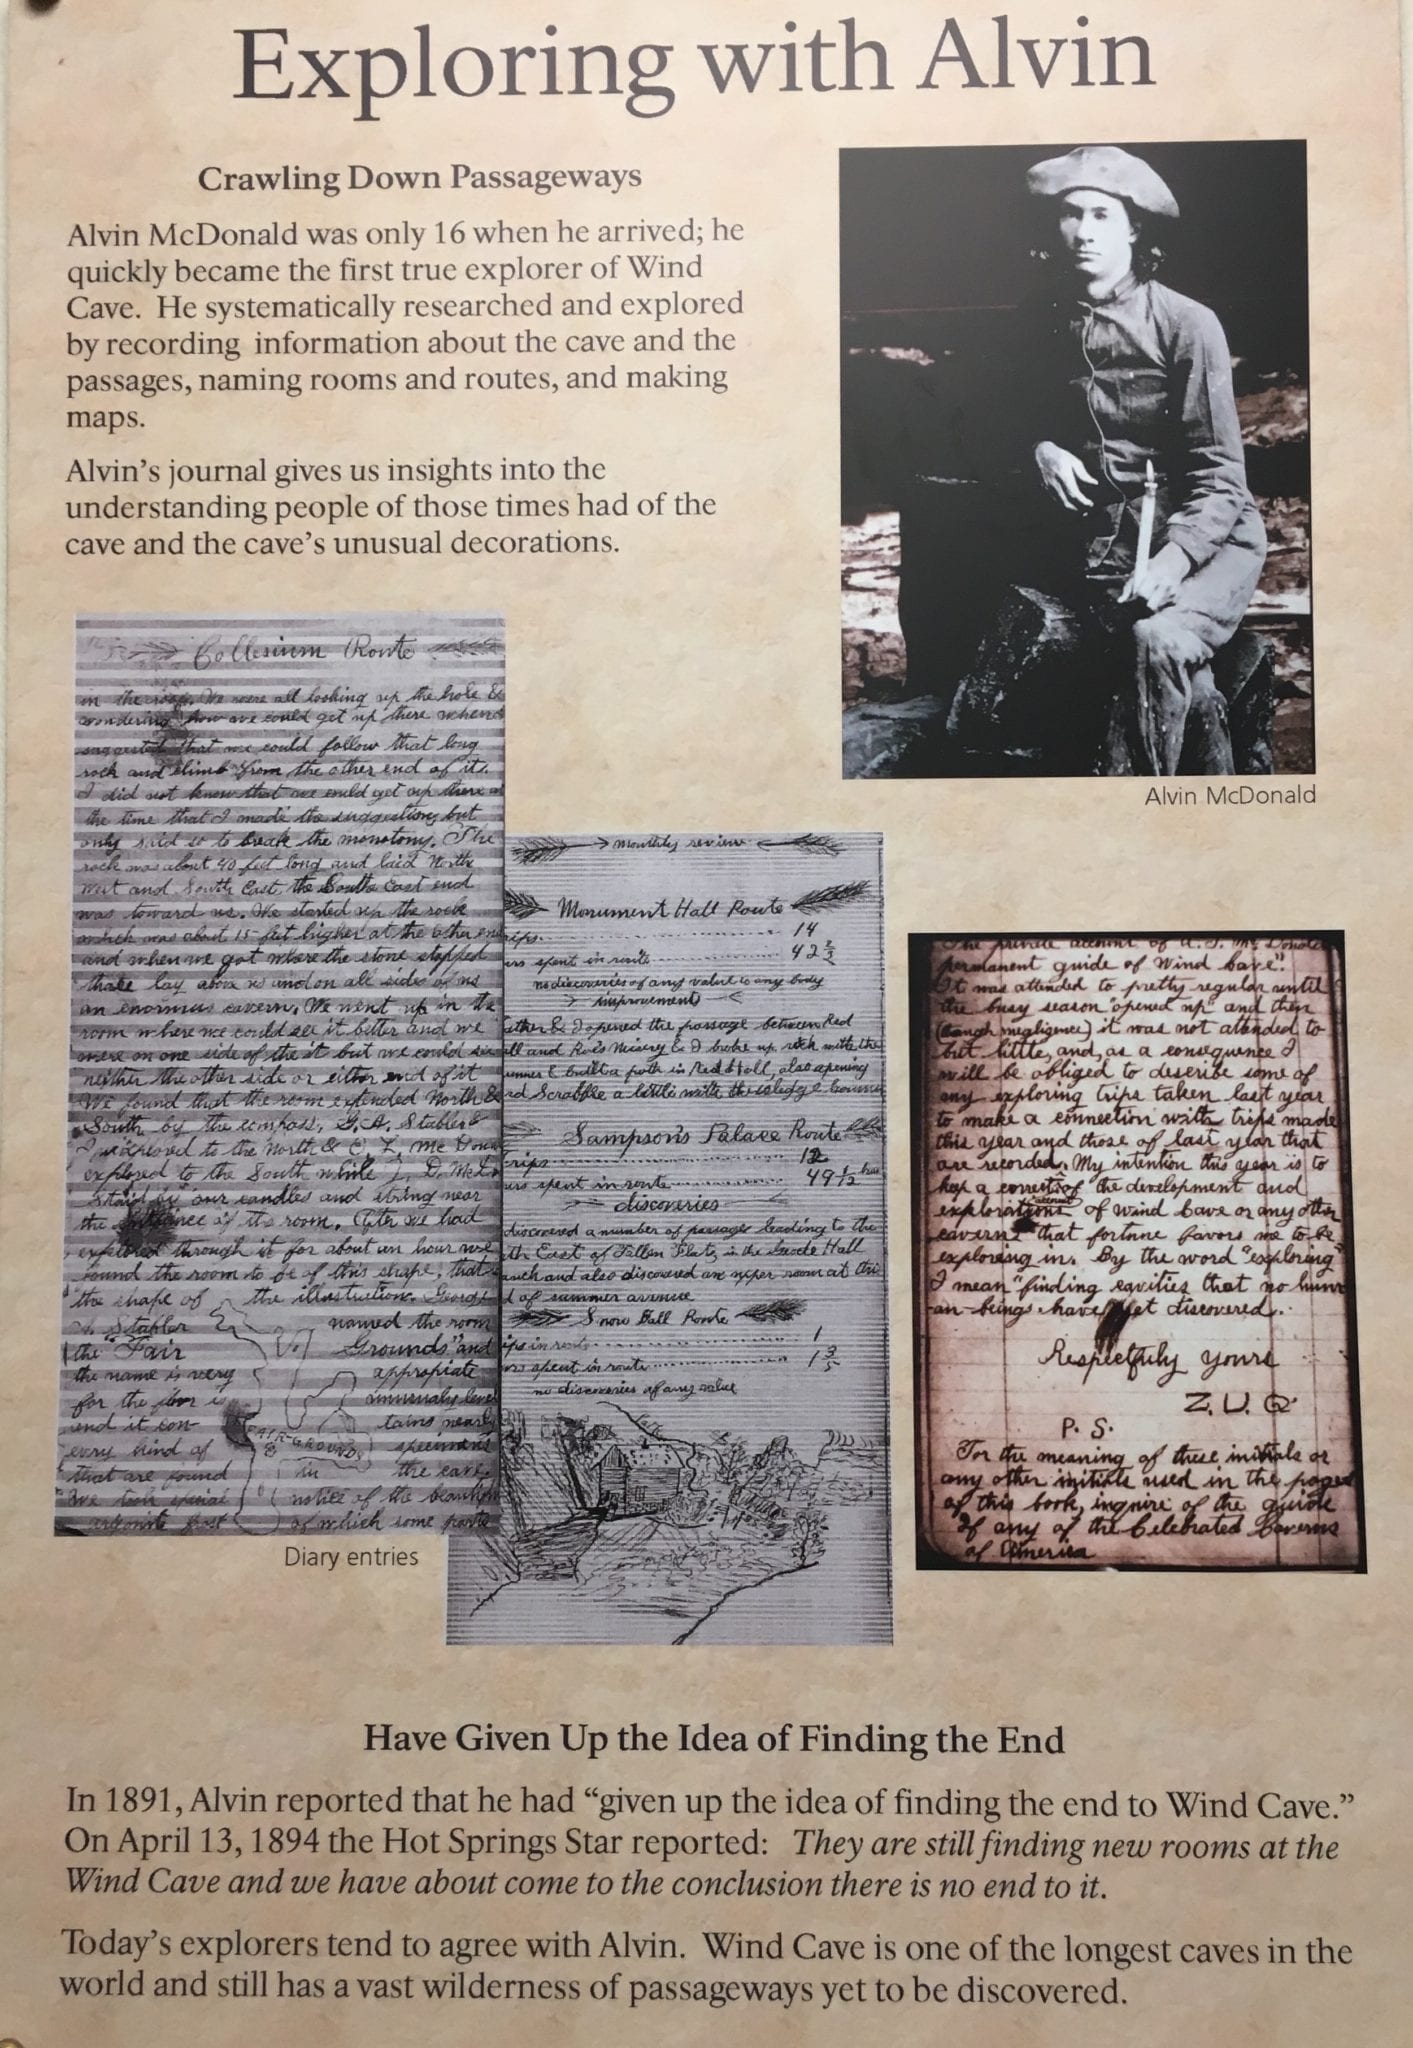 Exploring with Alvin
Crawling Down Passageways
Alvin McDonald was only 16 when he arrived; he
quickly became the first true explorer of Wind
Cave. He systematically researched and explored
by recording information about the cave and the
passages, naming rooms and routes, and making
maps.
Alvin's journal gives us insights into the
understanding people of those times had of the
cave and the cave's unusual decorations.
Alvin McDonald
Collesium Route
in the roof. We were all looking up the hole &
wondering how we could get up there when
suggested that we could follow that long
rock and climb from the other end of it.
I did not know that we could get up there
the time that I made the suggestion, but
only said so to break the monotony. The
rock was about 40 feet long and laid North
West and South East, the South East end
was toward us. We started up the rock
which was about 15 feet higher at the other en
and when we got where the stone stopped
there lay above us and on all sides of us
an enormous cavern. We went up in the
room where we could see it better and we
were on one side of the it but we could see
neither the other side or either end of it
We found that the room extended North &
South by the compass. G. A. Stabler &
I to the North &
explored to the South while
staid by our candles and string near
the entrance of the room. After we had
explored through it for about an hour we
found the room to be of this shape, that
the shape of the illustration. George
A. Stabler named the room
the "Fair Grounds" and
the name is very appropiate
for the floor is unusually leve
and it con- tains nearly
every kind of specimens
that are found in the cave.
We took special notice of the beautiful
of which some parts
FAIR-GROUNDS
Diary entries
monthly review
Monument Hall Route
rips 14
urs spent in route 42 2/3
no discoveries of any value to any body
improvement
ather & I opened the passage between Red
all and Roe's Misery & I broke up rock with the
& built a path in Red Hall, also opening
Scrabble a little with the sledge hammer
Sampson's Palace Route
Trips 12
urs spent in route 49 1/2 hrs
discoveries
discovered a number of passages leading to the
th East of Fallen Flats, in the Geode Hall
and also discovered an upper room at the
d of summer avenue
Snow Ball Route
ips in route 1
urs spent in route 1 3/5
no discoveries of any value
The private account of A. F. Mc Donald
permanent guide of Wind Cave".
It was attended to pretty regular until
the busy season "opened up" and then
negligence) it was not attended to
but little, and, as a consequence I
will be obliged to describe some of
my exploring trips taken last year
to make a connection with trips made
this year and those of last year that
are recorded. My intention this year is to
keep a correct account of the development and
explorations of Wind Cave or any other
caverns that fortune favors me to be
exploring in. By the word "exploring"
I mean "finding cavities that no hum-
an beings have yet discovered.
Respectfuly yours
Z. U. Q.
P. S.
For the meaning of these initials or
any other initials used in the pages
of this book, inquire of the guide
of any of the Celebrated Caverns
of America
Have Given Up the Idea of Finding the End
In 1891, Alvin reported that he had “given up the idea of finding the end to Wind Cave.”
On April 13, 1894 the Hot Springs Star reported: They are still finding new rooms at the
Wind Cave and we have about come to the conclusion there is no end to it.
Today's explorers tend to agree with Alvin. Wind Cave is one of the longest caves in the
world and still has a vast wilderness of passageways yet to be discovered.